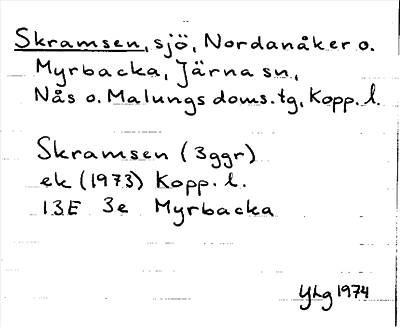 Skramsen, sjö, Nordanåker o.
Myrbacka, Järna sn,
Nås o. Malungs doms.tg, Kopp. l.
Skramsen (3ggr)
ek (1973) Kopp. l.
13E 3e Myrbacka
YLg 1974